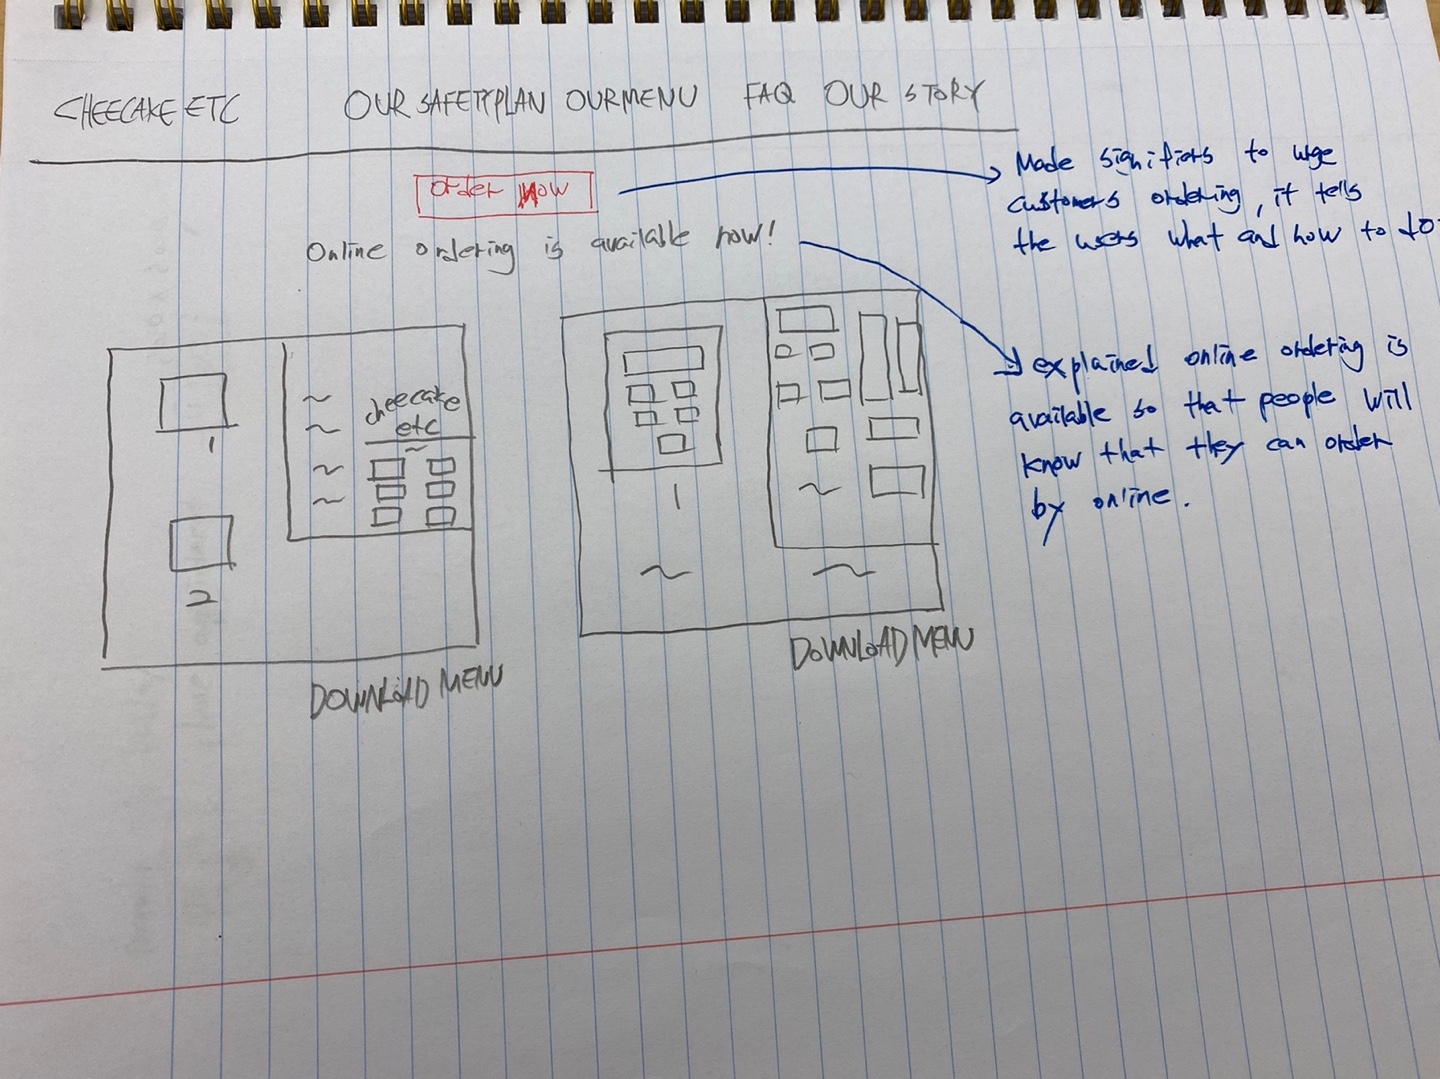 CHEECAKE ETC OUR SAFETYPLAN OUR MENU FAQ OUR STORY
Order Now
Online ordering is available now!
Made signifiers to urge
customers ordering, it tells
the users what and how to do.
explained online ordering is
available so that people will
know that they can order
by online.
1
2
~
~
~
~
cheecake
etc
~
DOWNLOAD MENU
1
~
~
~
DOWNLOAD MENU